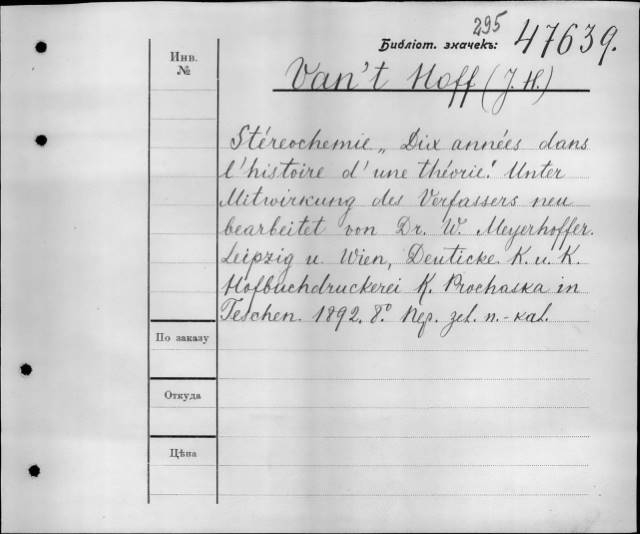 295
Библіот. значекъ: 47639.
Инв. №
Van't Hoff (J. H.)
Stéréochemie „Dix années dans
l'histoire d'une théorie". Unter
Mitwirkung des Verfassers neu
bearbeitet von Dr. W. Meyerhoffer.
Leipzig u. Wien, Deuticke. K. u. K.
Hofbuchdruckerei K. Prochaska in
Teschen. 1892. 8.° Пер. zel. п.-kal.
По заказу
Откуда
Цѣна